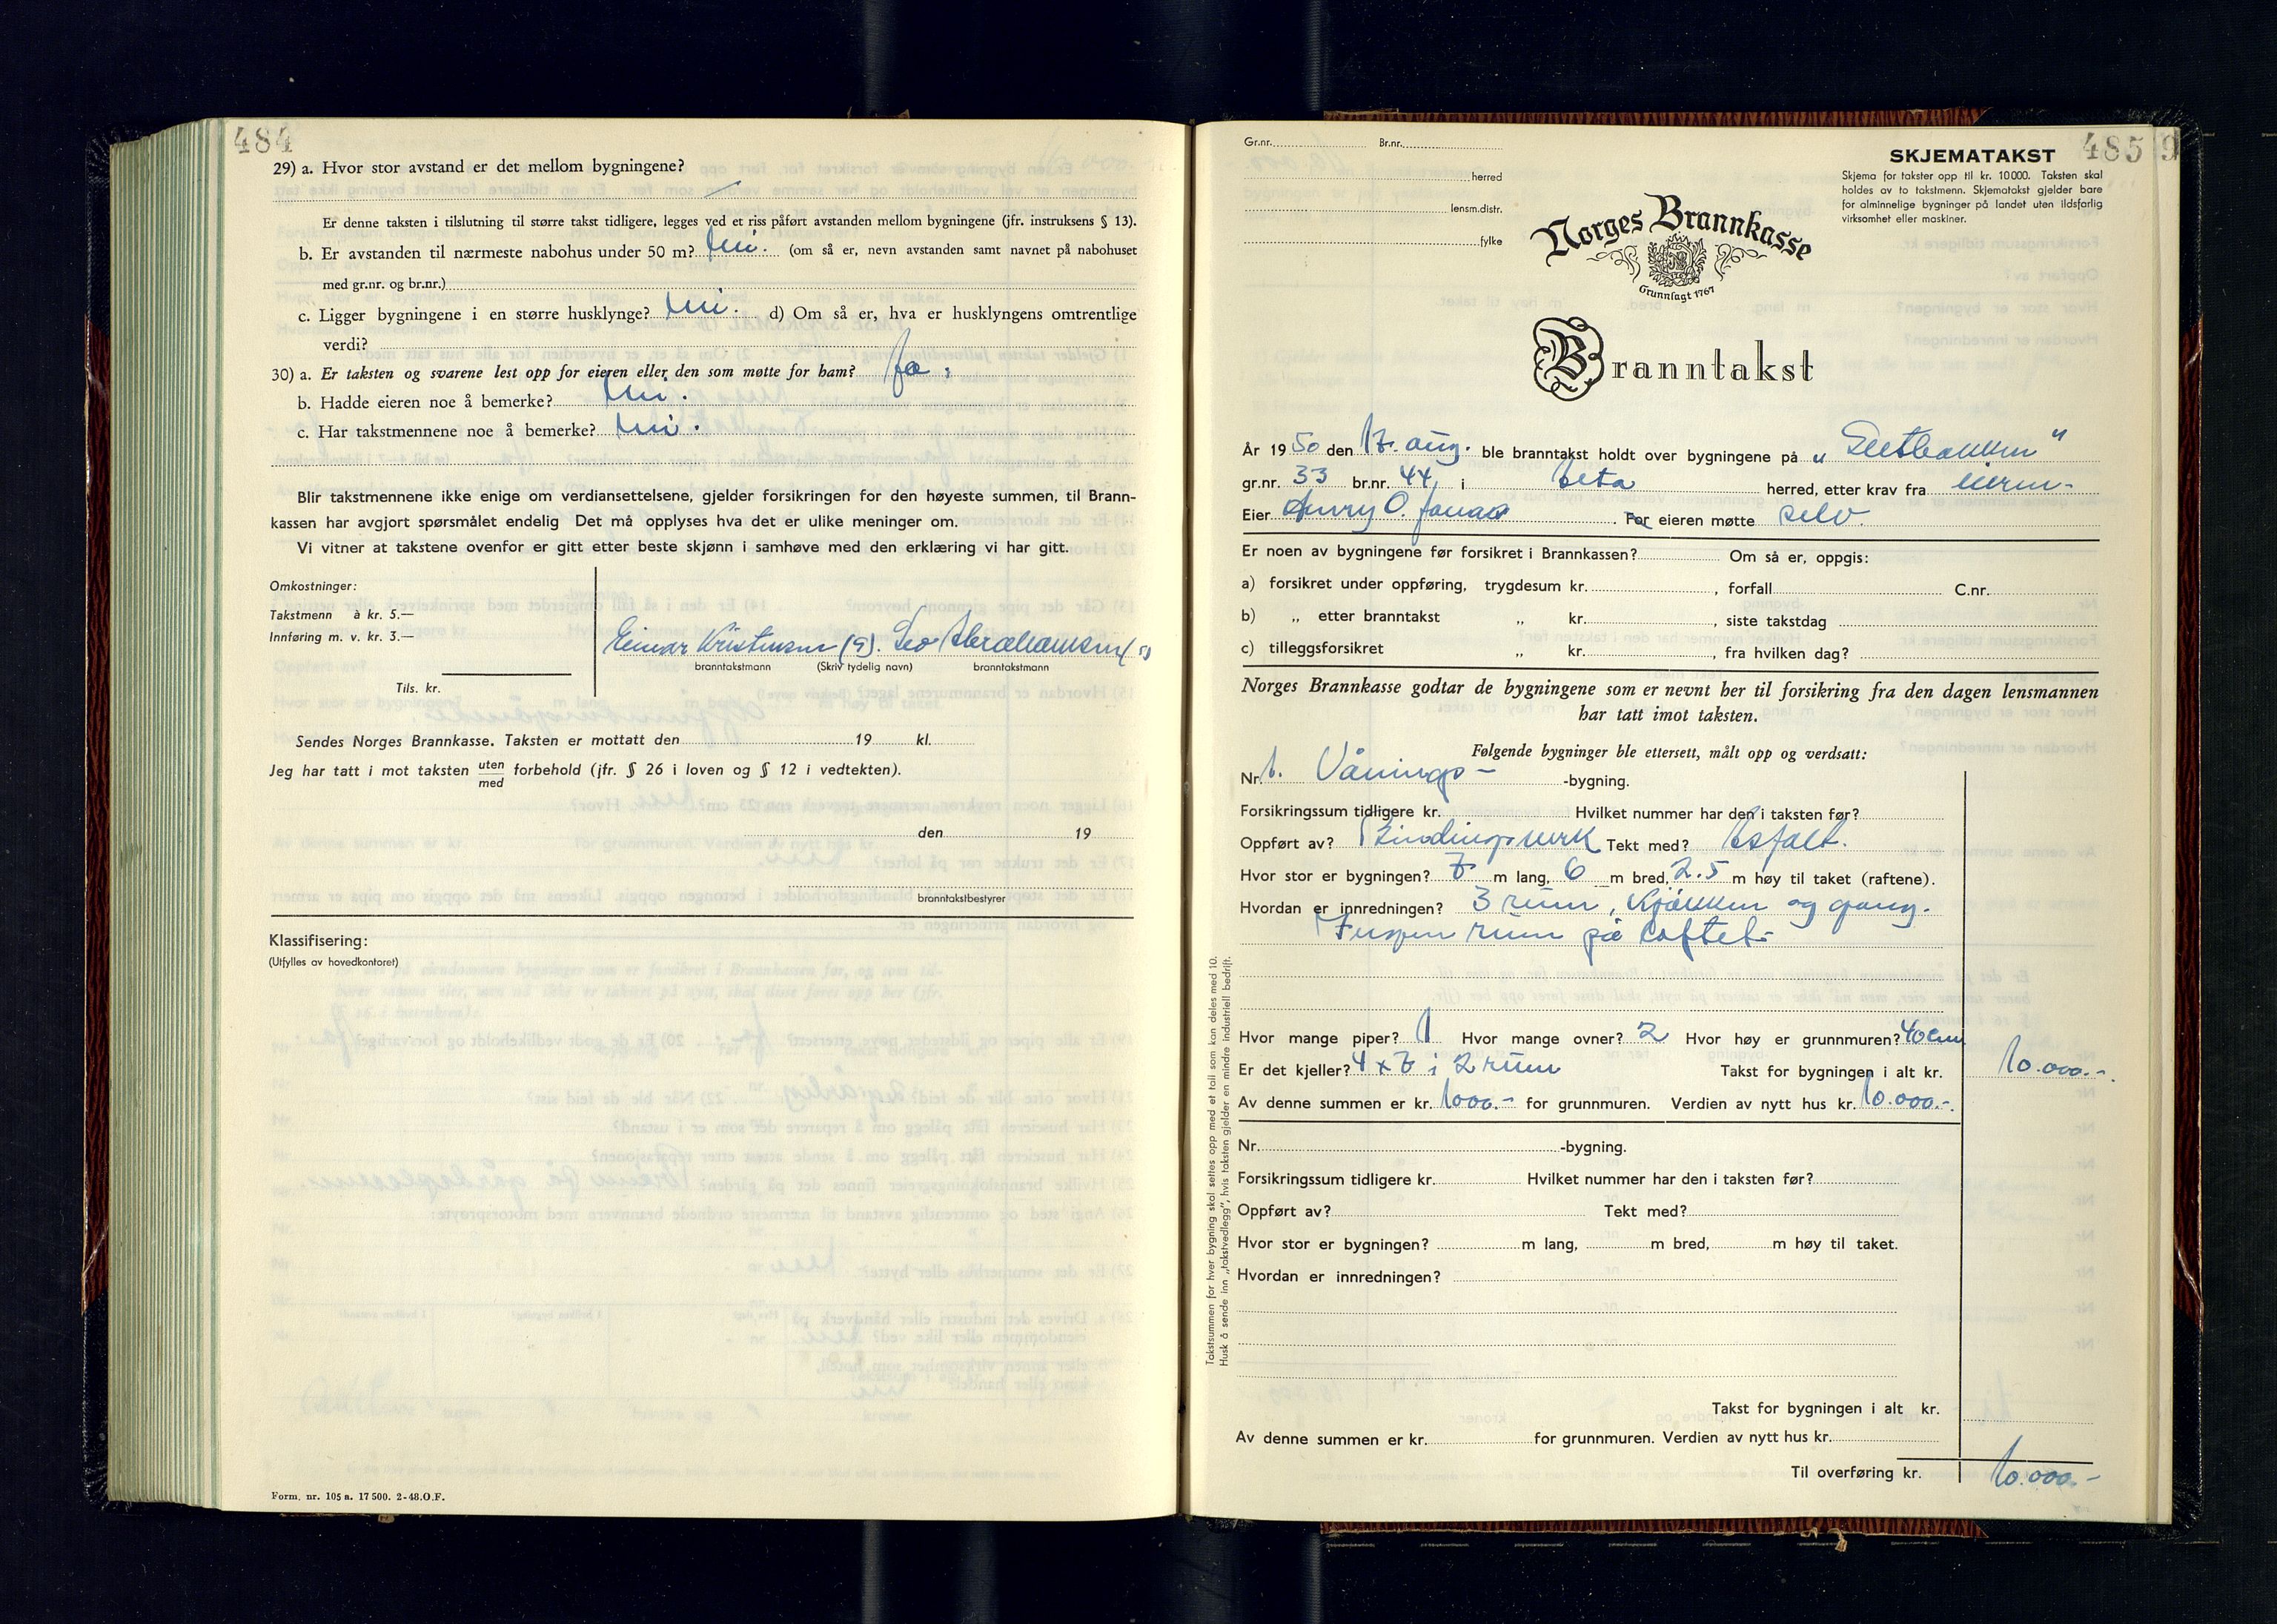 484
29) a. Hvor stor avstand er det mellom bygningene?
Er denne taksten i tilslutning til større takst tidligere, legges ved et riss påført avstanden mellom bygningene (jfr. instruksens § 13).
b. Er avstanden til nærmeste nabohus under 50 m? Nei. (om så er, nevn avstanden samt navnet på nabohuset
med gr.nr. og br.nr.)
c. Ligger bygningene i en større husklynge? Nei. d) Om så er, hva er husklyngens omtrentlige
verdi?
30) a. Er taksten og svarene lest opp for eieren eller den som møtte for ham? Ja.
b. Hadde eieren noe å bemerke? Nei.
c. Har takstmennene noe å bemerke? Nei.
Blir takstmennene ikke enige om verdiansettelsene, gjelder forsikringen for den høyeste summen, til Brann-
kassen har avgjort spørsmålet endelig Det må opplyses hva det er ulike meninger om.
Vi vitner at takstene ovenfor er gitt etter beste skjønn i samhøve med den erklæring vi har gitt.
Omkostninger:
Takstmenn à kr. 5.—
Innføring m. v. kr. 3.—
Einar Kristensen (s). Leo Abrahamsen (s)
branntakstmann (Skriv tydelig navn) branntakstmann
Tils. kr.
Sendes Norges Brannkasse. Taksten er mottatt den 19 kl.
Jeg har tatt i mot taksten uten/med forbehold (jfr. § 26 i loven og § 12 i vedtekten).
den 19
branntakstbestyrer
Klassifisering:
(Utfylles av hovedkontoret)
Form. nr. 105 a. 17 500. 2-48. O. F.
485 9
Gr.nr. Br.nr.
herred
lensm.distr.
fylke
SKJEMATAKST
Skjema for takster opp til kr. 10000. Taksten skal
holdes av to takstmenn. Skjematakst gjelder bare
for alminnelige bygninger på landet uten ildsfarlig
virksomhet eller maskiner.
Norges Brannkasse
Grunnlagt 1767
Branntakst
År 1950 den 17. aug. ble branntakst holdt over bygningene på
gr.nr. 33 br.nr. 44 i herred, etter krav fra eieren-
Eier Henry O. For eieren møtte selv.
Er noen av bygningene før forsikret i Brannkassen? Om så er, oppgis:
a) forsikret under oppføring, trygdesum kr. , forfall C.nr.
b) „ etter branntakst „ kr. , siste takstdag
c) tilleggsforsikret „ kr. , fra hvilken dag?
Norges Brannkasse godtar de bygningene som er nevnt her til forsikring fra den dagen lensmannen
har tatt imot taksten.
Følgende bygninger ble ettersett, målt opp og verdsatt:
Nr. 1. Vånings- -bygning.
Forsikringssum tidligere kr. Hvilket nummer har den i taksten før?
Oppført av? Bindingsverk Tekt med? Asfalt.
Hvor stor er bygningen? 7 m lang, 6 m bred, 2.5 m høy til taket (raftene).
Hvordan er innredningen? 3 rum, kjøkken og gang.
Ingen rum på loftet-
Hvor mange piper? 1 Hvor mange ovner? 2 Hvor høy er grunnmuren? 40 cm
Er det kjeller? 4 x 7 i 2 rum Takst for bygningen i alt kr. 10.000.-
Av denne summen er kr. 1000.- for grunnmuren. Verdien av nytt hus kr. 10.000.-.
Nr. -bygning.
Forsikringssum tidligere kr. Hvilket nummer har den i taksten før?
Oppført av? Tekt med?
Hvor stor er bygningen? m lang, m bred, m høy til taket.
Hvordan er innredningen?
Takst for bygningen i alt kr.
Av denne summen er kr. for grunnmuren. Verdien av nytt hus kr.
Til overføring kr. 10.000.-
Takstsummen for hver bygning skal settes opp med et tall som kan deles med 10.
Husk å sende inn „takstvedlegg", hvis taksten gjelder en mindre industriell bedrift.